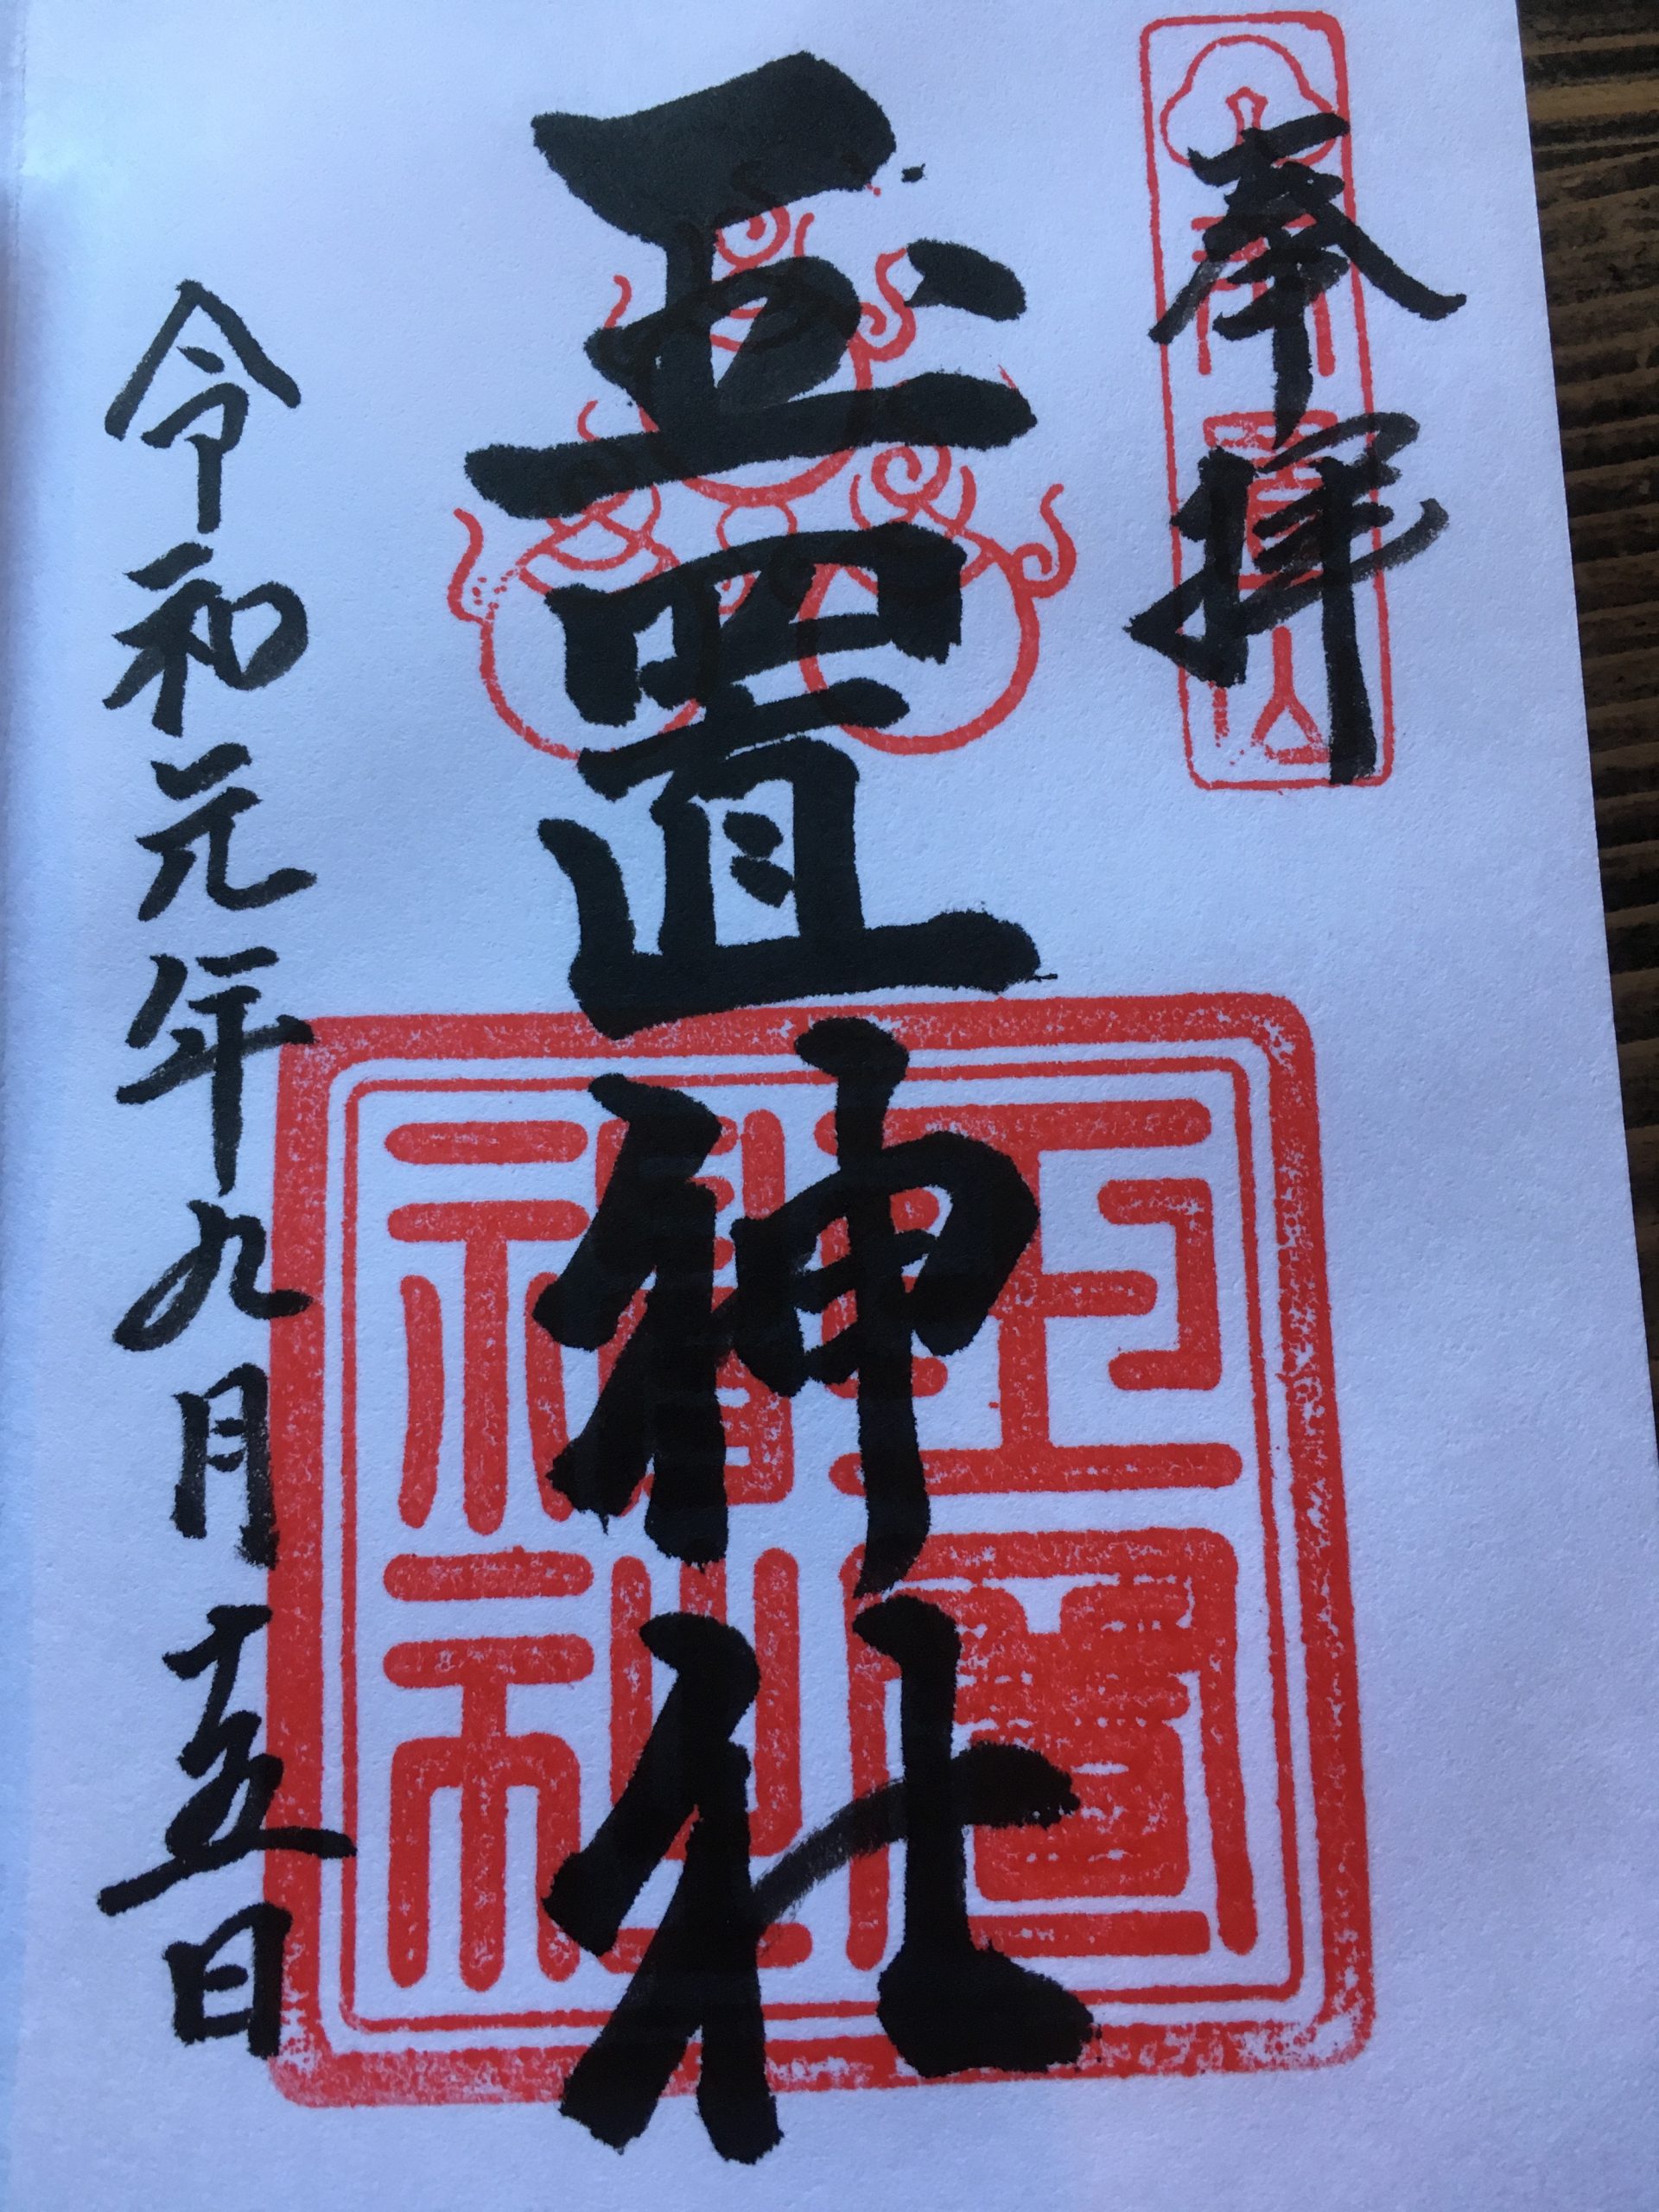 奉拝
玉置神社
玉置
神社
令和元年九月十五日